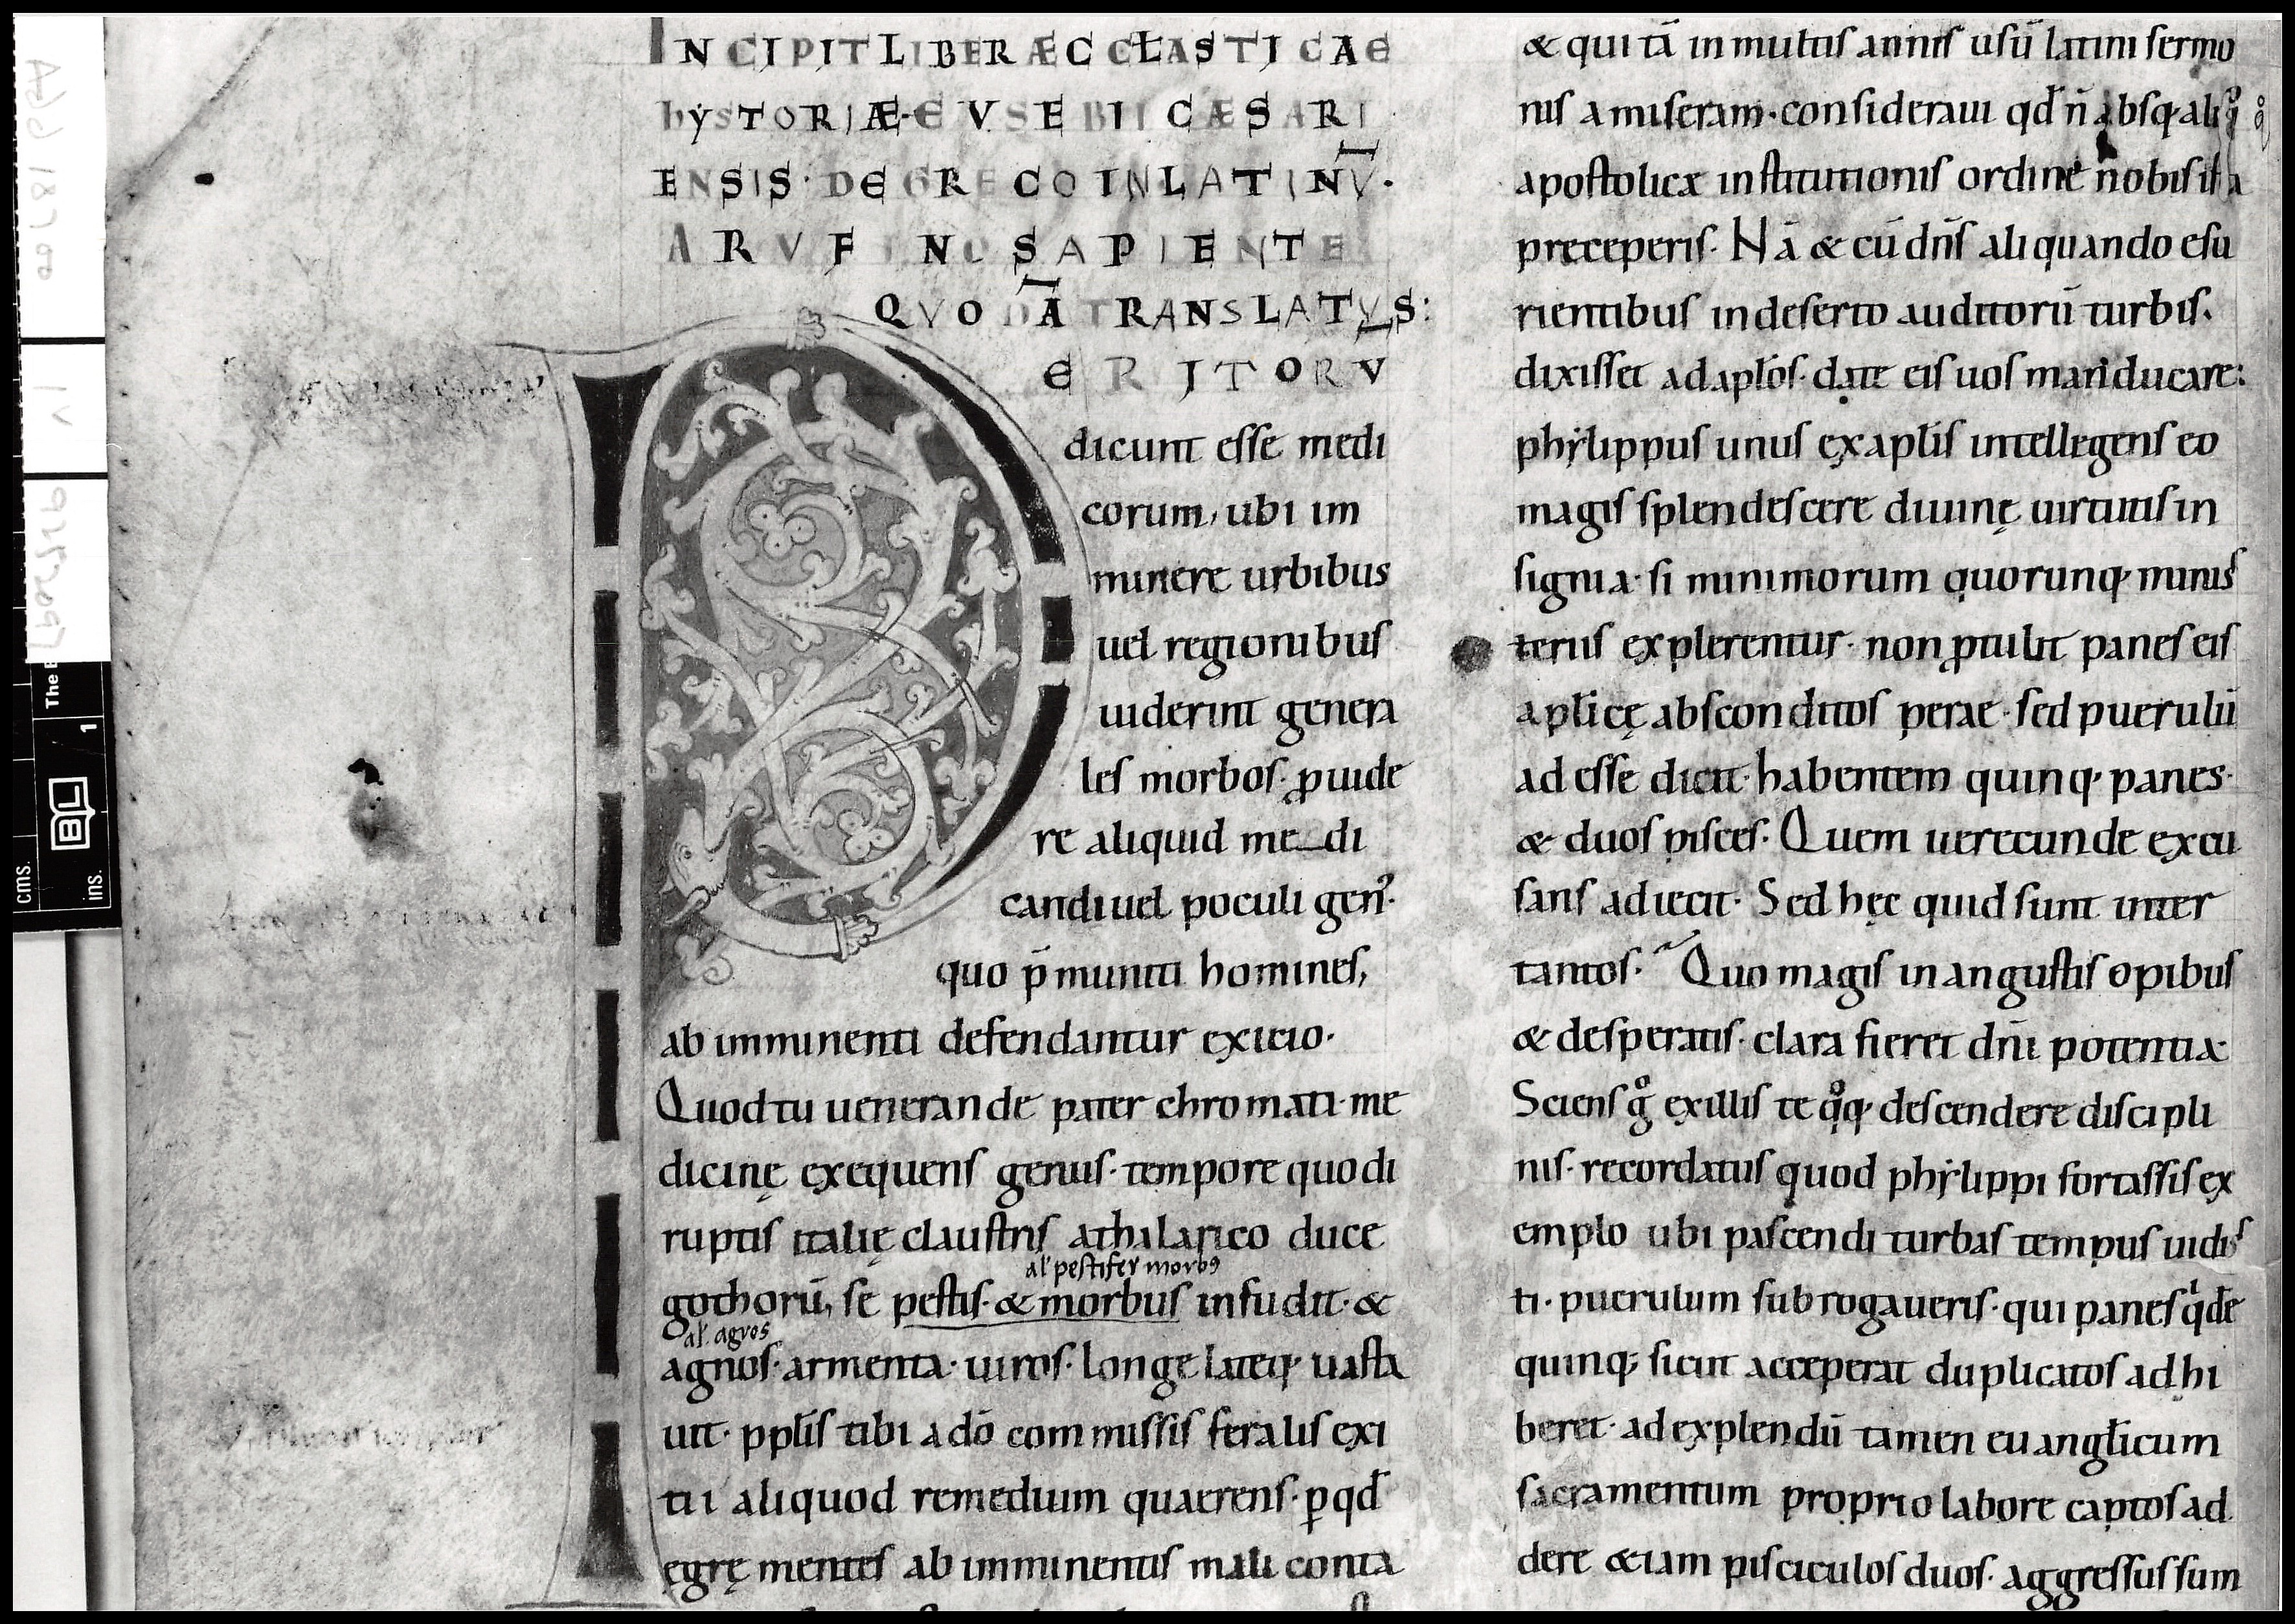 INCIPIT LIBER ÆCCLASTICAE
hẏSTORIÆ· EVSEBII CÆSARI
ENSIS· DE GRECO IN LATINV̄·
A RVFINO SAPIENTE
QVODĀ TRANSLATVS:
PERITORV
dicunt esse medi
corum, ubi im
minere urbibus
uel regionibus
uiderint genera
les morbos· ꝓuide
re aliquid me_di
candi uel poculi gen̉·
quo p̄muniti homines,
ab imminenti defendantur exicio·
Quod tu uenerande pater chromati· me
dicinę exequens genus· tempore quo di
ruptis italię claustris athalarico duce
al' pestifer morbꝰ
gothorū, se pestis· & morbus infudit· &
al'. agros
agnos· armenta· uiros· longe lateq· uasta
uit· ppl̄is tibi a dō commissis feralis exi
tii aliquod remedium quaerens· ꝑ qd̄
egrę mentes ab imminentis mali conta
& qui tā in multis annis usū latini sermo
nis amiseram· consideraui qd̄ n̄ absq· aliq̊
apostolicæ institutionis ordine nobis ista
preceperis· Nā & cū dn̄s aliquando esu
rientibus in deserto auditorū turbis.
dixisset ad apl̄os· date eis uos manducare:
phẏlippus unus ex apl̄is intellegens eo
magis splendescere diuinę uirtutis in
signia· si minimorum quorunq· minis
teriis explerentur· non ꝓtulit panes eis
apl̄icę absconditos perae· sed puerulū
adesse dicit· habentem quinq· panes·
& duos pisces· Quem uerecunde excu
sans adiecit· Sed hęc quid sunt inter
tantos· Quo magis in angustis opibus
& desperatis· clara fieret dn̄i potentia·
Sciens g̊ ex illis te q̊q· descendere discipli
nis· recordatus quod phẏlippi fortassis ex
emplo ubi pascendi turbas tempus uidis
ti· puerulum subrogaueris· qui panes qⁱdē
quinq; sicut acceperat duplicatos adhi
beret· ad explendū tamen euangl̄icum
sacramentum proprio labore captos ad
dere &iam pisciculos duos· aggressus sum
Add 18100
1 v
The B
cms.
ins.
1
BL